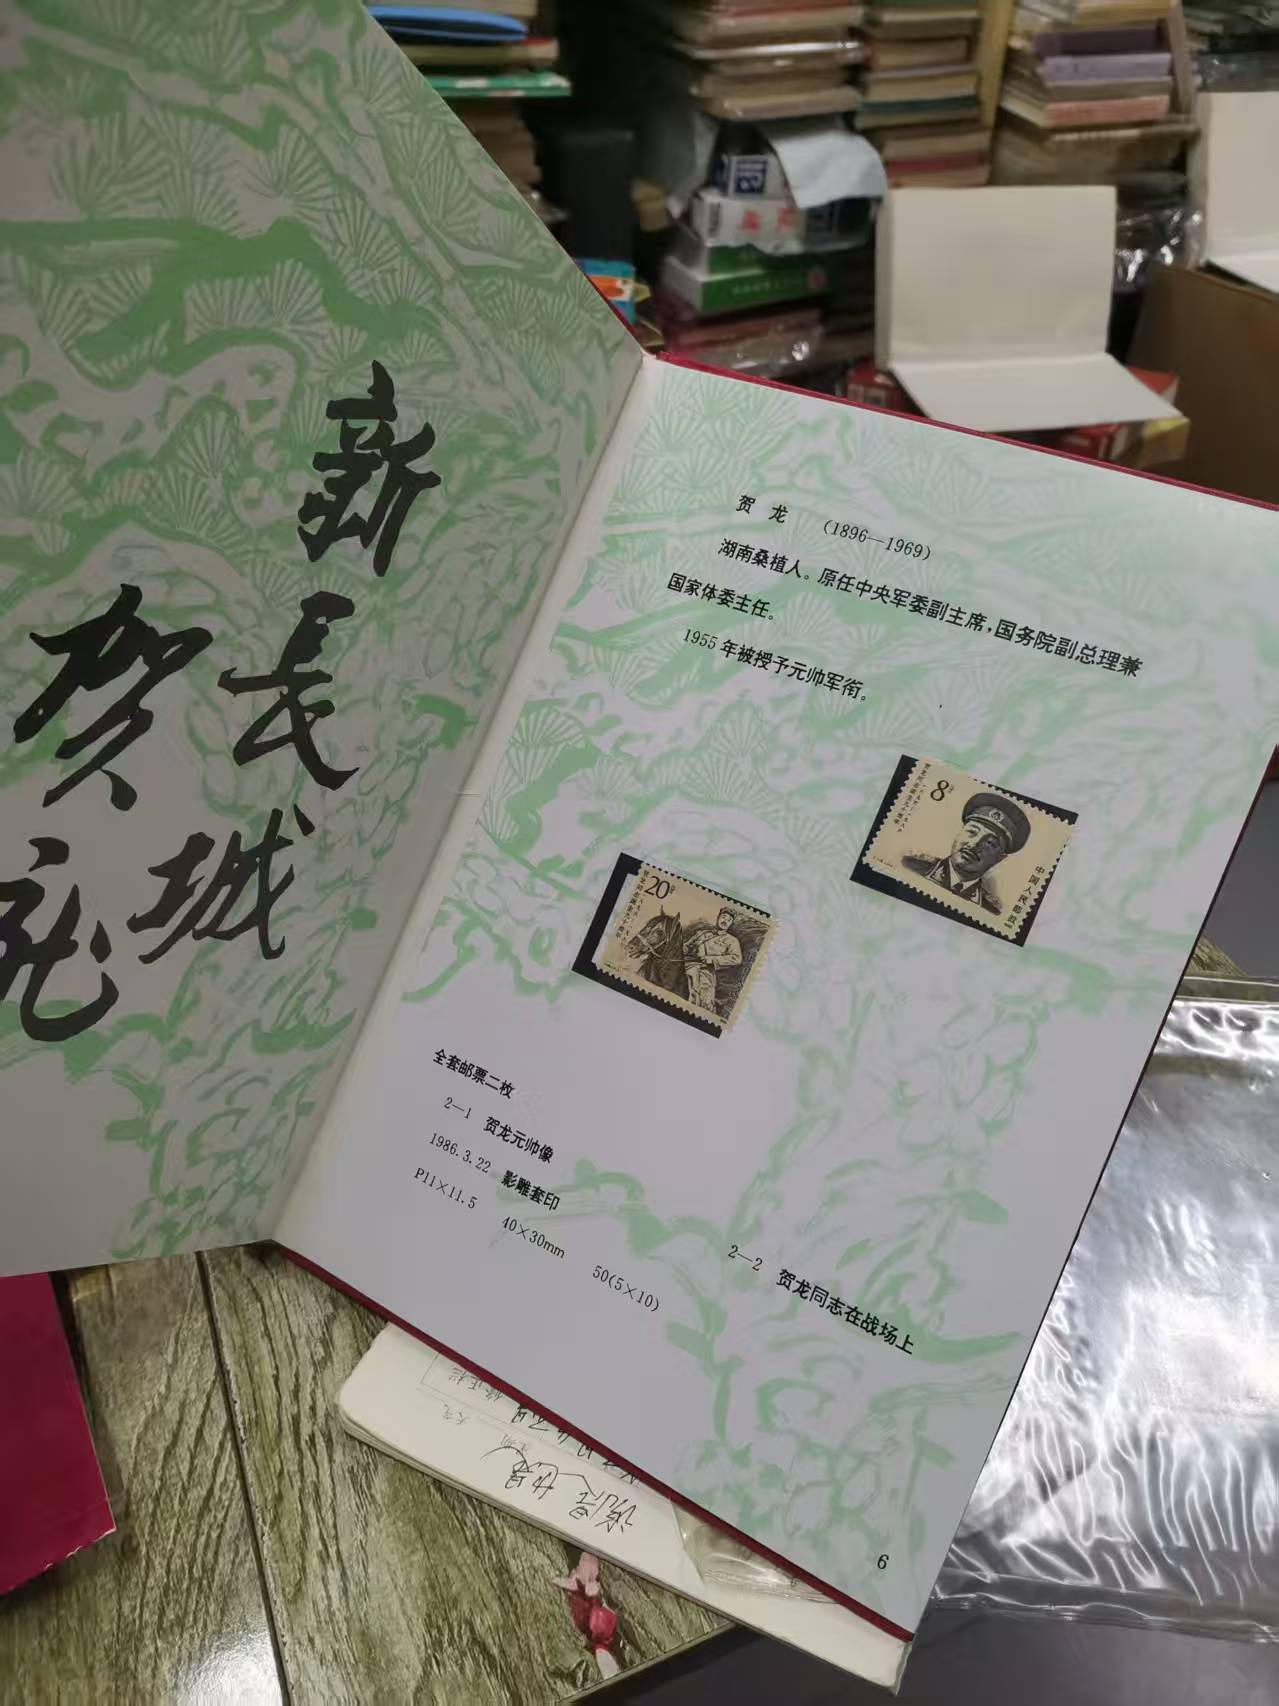 新長城
贺龙
贺 龙 (1896—1969)
湖南桑植人。原任中央军委副主席,国务院副总理兼
国家体委主任。
1955年被授予元帅军衔。
8分
中国人民邮政
20分
全套邮票二枚
2—1 贺龙元帅像
2—2 贺龙同志在战场上
1986.3.22 影雕套印
P11×11.5 40×30mm 50(5×10)
6